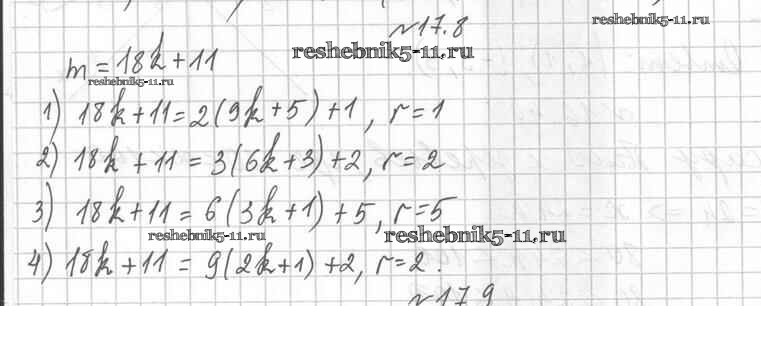 №17.8
reshebnik5-11.ru
reshebnik5-11.ru
m = 18k + 11
reshebnik5-11.ru
1) 18k + 11 = 2(9k + 5) + 1, r = 1
2) 18k + 11 = 3(6k + 3) + 2, r = 2
3) 18k + 11 = 6(3k + 1) + 5, r = 5
reshebnik5-11.ru
reshebnik5-11.ru
4) 18k + 11 = 9(2k + 1) + 2, r = 2.
№17.9